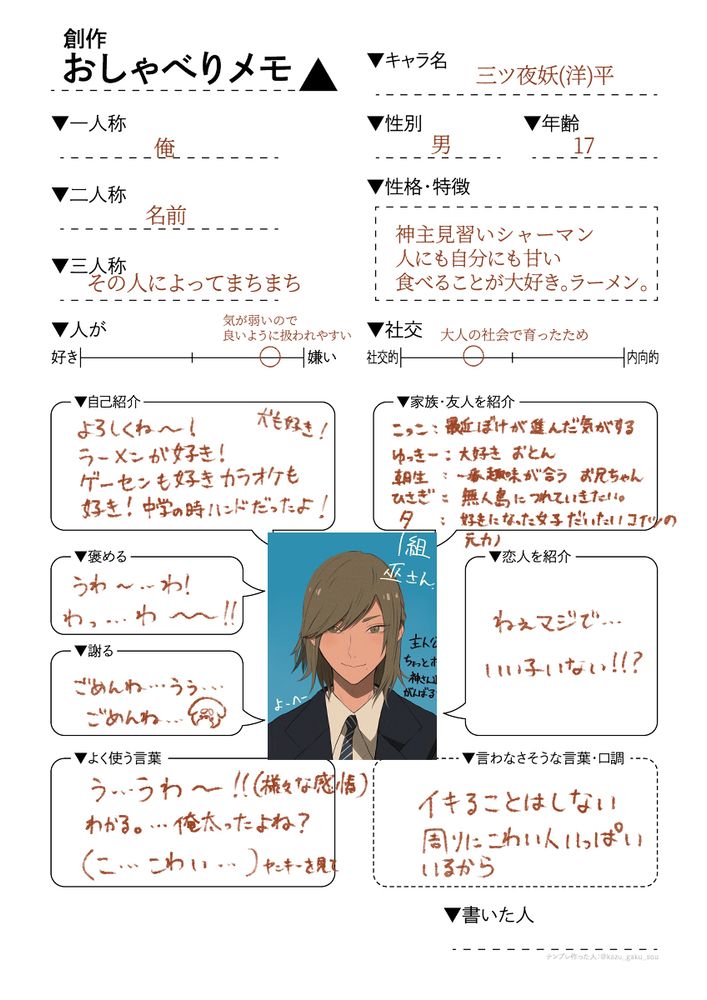 創作
おしゃべりメモ
▼キャラ名
三ツ夜妖(洋)平
▼一人称
俺
▼性別
男
▼年齢
17
▼二人称
名前
▼性格・特徴
神主見習いシャーマン
人にも自分にも甘い
食べることが大好き。ラーメン。
▼三人称
その人によってまちまち
▼人が
気が弱いので
良いように扱われやすい
好き
嫌い
▼社交
大人の社会で育ったため
社交的
内向的
▼自己紹介
よろしくね〜!
犬も好き!
ラーメンが好き!
ゲーセンも好きカラオケも
好き!中学の時ハンドだったよ!
▼家族・友人を紹介
こっこ:最近ぼけが進んだ気がする
ゆっきー:大好き おとん
朝生:一番趣味が合う お兄ちゃん
ひさぎ:無人島につれていきたい。
夕:好きになった女子だいたいコイツの
元カノ
▼褒める
うわ〜…わ!
わっ…わ〜〜!!
▼謝る
ごめんね…うぅ…
ごめんね…
1組
巫さん
主人公
ちょっとオ
神さん
がんばる
よーへー
▼恋人を紹介
ねぇマジで…
いい子いない!!?
▼よく使う言葉
う…うわ〜!!(様々な感情)
わかる。…俺太ったよね?
(こ…こわい…)ヤンキーを見て
▼言わなさそうな言葉・口調
イキることはしない
周りにこわい人いっぱい
いるから
▼書いた人
テンプレ作った人:@kazu_gaku_sou